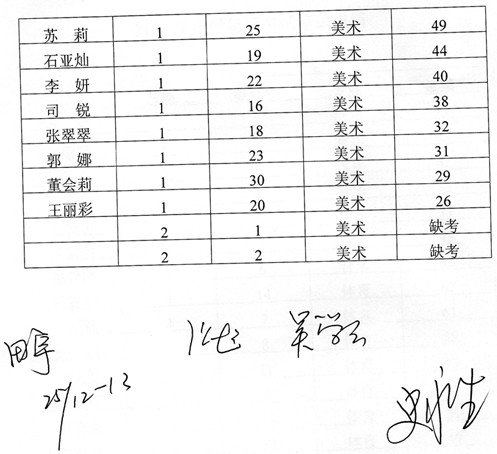 苏 莉 1 25 美术 49
石亚灿 1 19 美术 44
李 妍 1 22 美术 40
司 锐 1 16 美术 38
张翠翠 1 18 美术 32
郭 娜 1 23 美术 31
董会莉 1 30 美术 29
王丽彩 1 20 美术 26
2 1 美术 缺考
2 2 美术 缺考
田宇
25/12-13